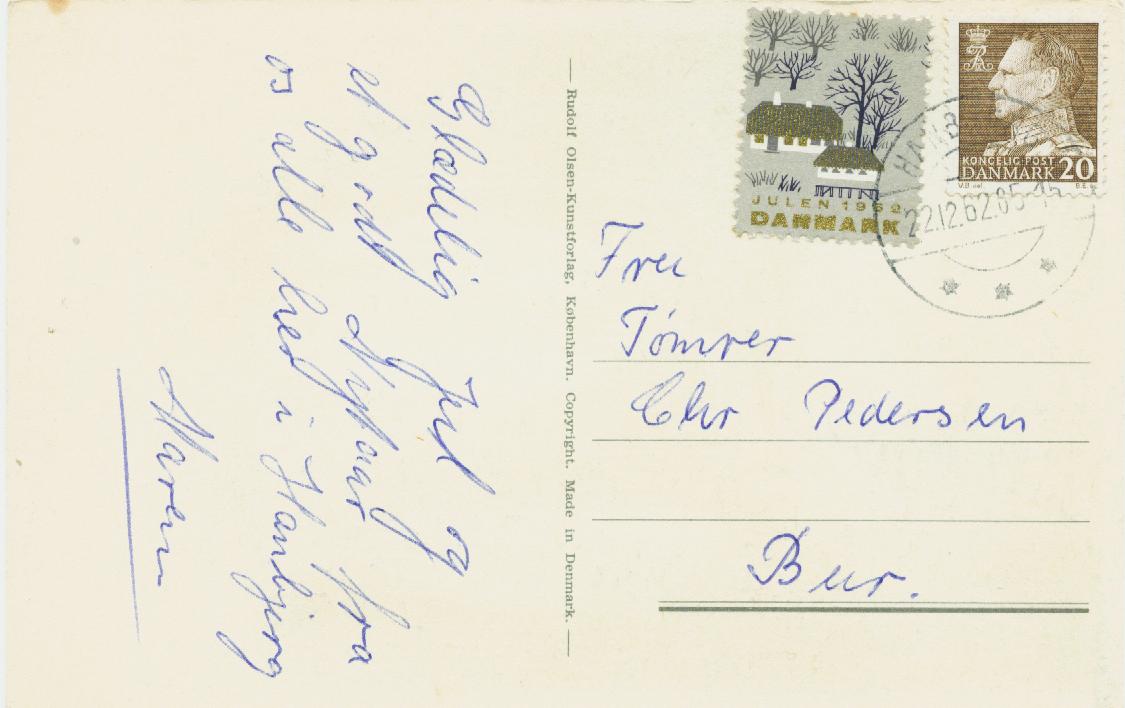 Glædelig Jul og
et godt Nytaar fra
os alle her i Hanbjerg
Maren
— Rudolf Olsen-Kunstforlag, København. Copyright. Made in Denmark. —
JULEN 1962
DANMARK
KONGELIG POST
DANMARK 20
V.B del. B.E. sc.
22.12.62.05-15
Fru
Tömrer
Chr Pedersen
Bur.